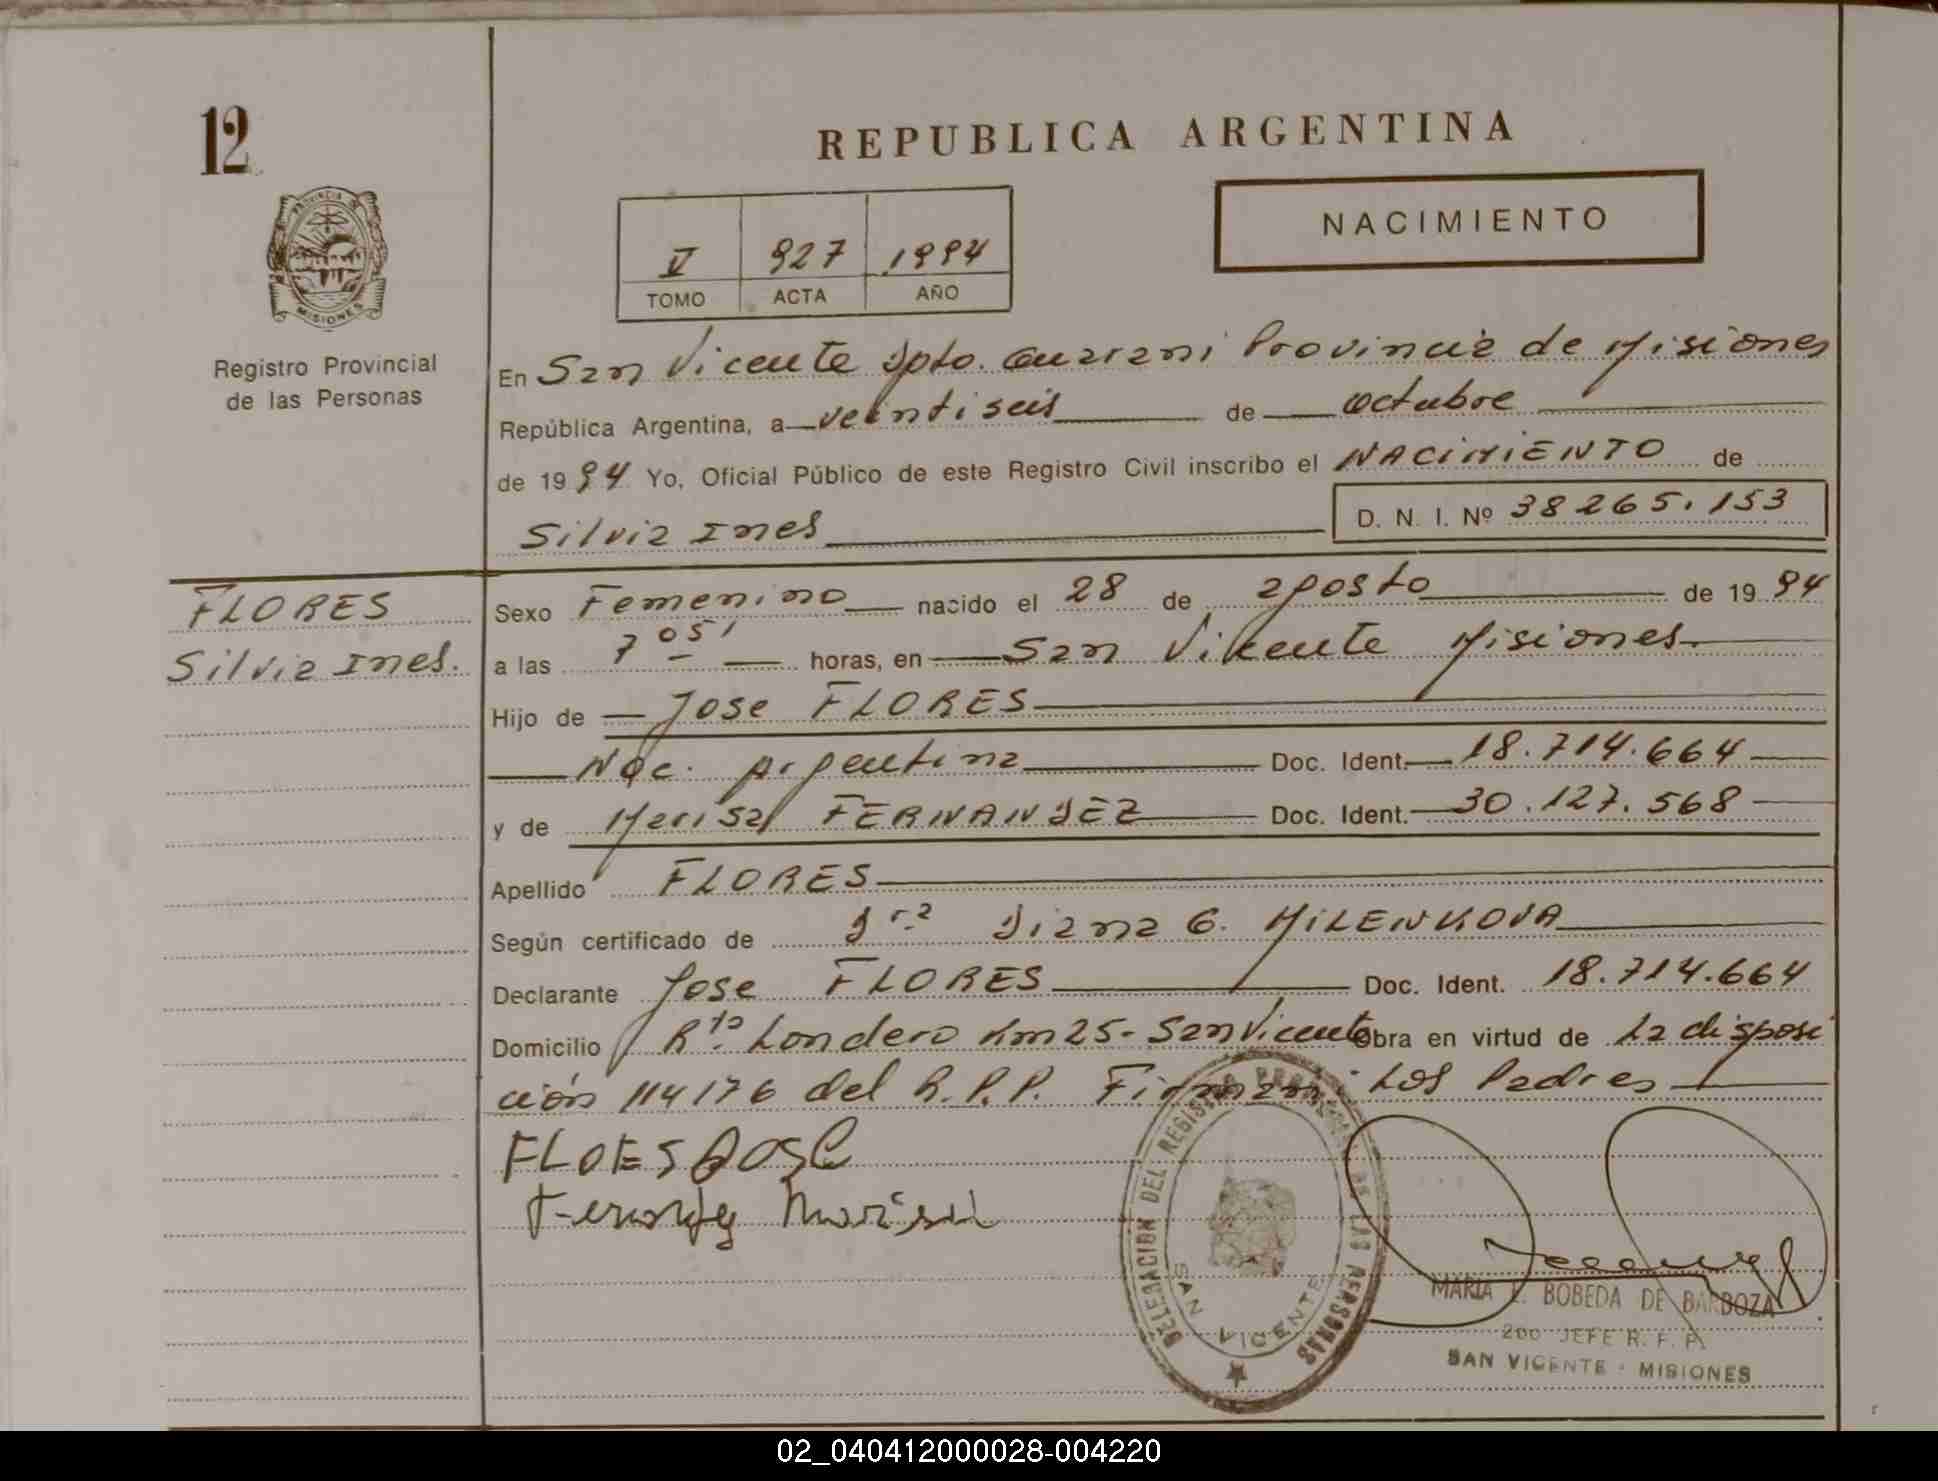 12
REPUBLICA ARGENTINA
NACIMIENTO
V 927 1994
TOMO ACTA AÑO
PROVINCIA DE
MISIONES
Registro Provincial
de las Personas
En San Vicente Dpto. Guarani Provincia de Misiones
República Argentina, a veintiseis de octubre
de 1994 Yo, Oficial Público de este Registro Civil inscribo el NACIMIENTO de
Silvia Ines D. N. I. Nº 38265.153
FLORES
Silvia Ines.
Sexo Femenino nacido el 28 de agosto de 1994
a las 7 05' horas, en San Vicente Misiones
Hijo de Jose FLORES
Nac. Argentina Doc. Ident. 18.714.664
y de Marisa FERNANDEZ Doc. Ident. 30.127.568
Apellido FLORES
Según certificado de Dra Diana G. MILENKOVA
Declarante Jose FLORES Doc. Ident. 18.714.664
Domicilio Rta Londero Km 25 - San Vicente Obra en virtud de La disposi
ción 114/76 del R.P.P. Firman: Los Padres
FLOES JOSE
Marisa
DELEGACION DEL REGISTRO PROVINCIAL DE LAS PERSONAS
SAN VICENTE
MARIA L. BOBEDA DE BARBOZA
2do JEFE R. P. P.
SAN VICENTE - MISIONES
02_040412000028-004220